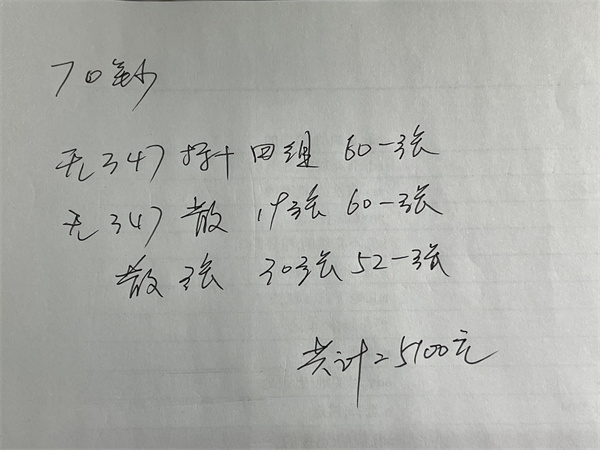 70钞
无347 标十 四组 60一张
无347 散 19张 60一张
散张 30张 52一张
共计=5100元